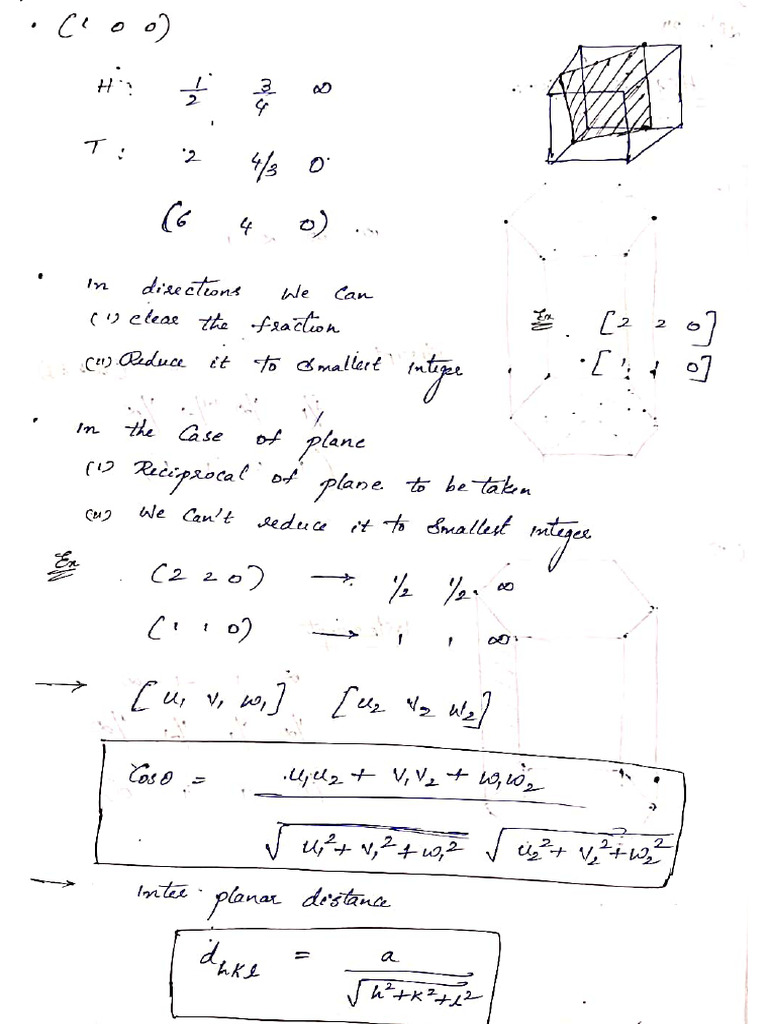 • (1 0 0)
H : 1/2 3/4 ∞
T : 2 4/3 0
(6 4 0)
• In directions we can
(i) clear the fraction
(ii) Reduce it to smallest integer
Ex [2 2 0]
[1 1 0]
• In the case of plane
(i) Reciprocal of plane to be taken
(ii) we can't reduce it to smallest integer
Ex (2 2 0) → 1/2 1/2 ∞
(1 1 0) → 1 1 ∞
→ [u₁ v₁ w₁] [u₂ v₂ w₂]
Cosθ = u₁u₂ + v₁v₂ + w₁w₂ / √u₁²+v₁²+w₁² √u₂²+v₂²+w₂²
→ Inter planar distance
d hkl = a / √h²+k²+l²